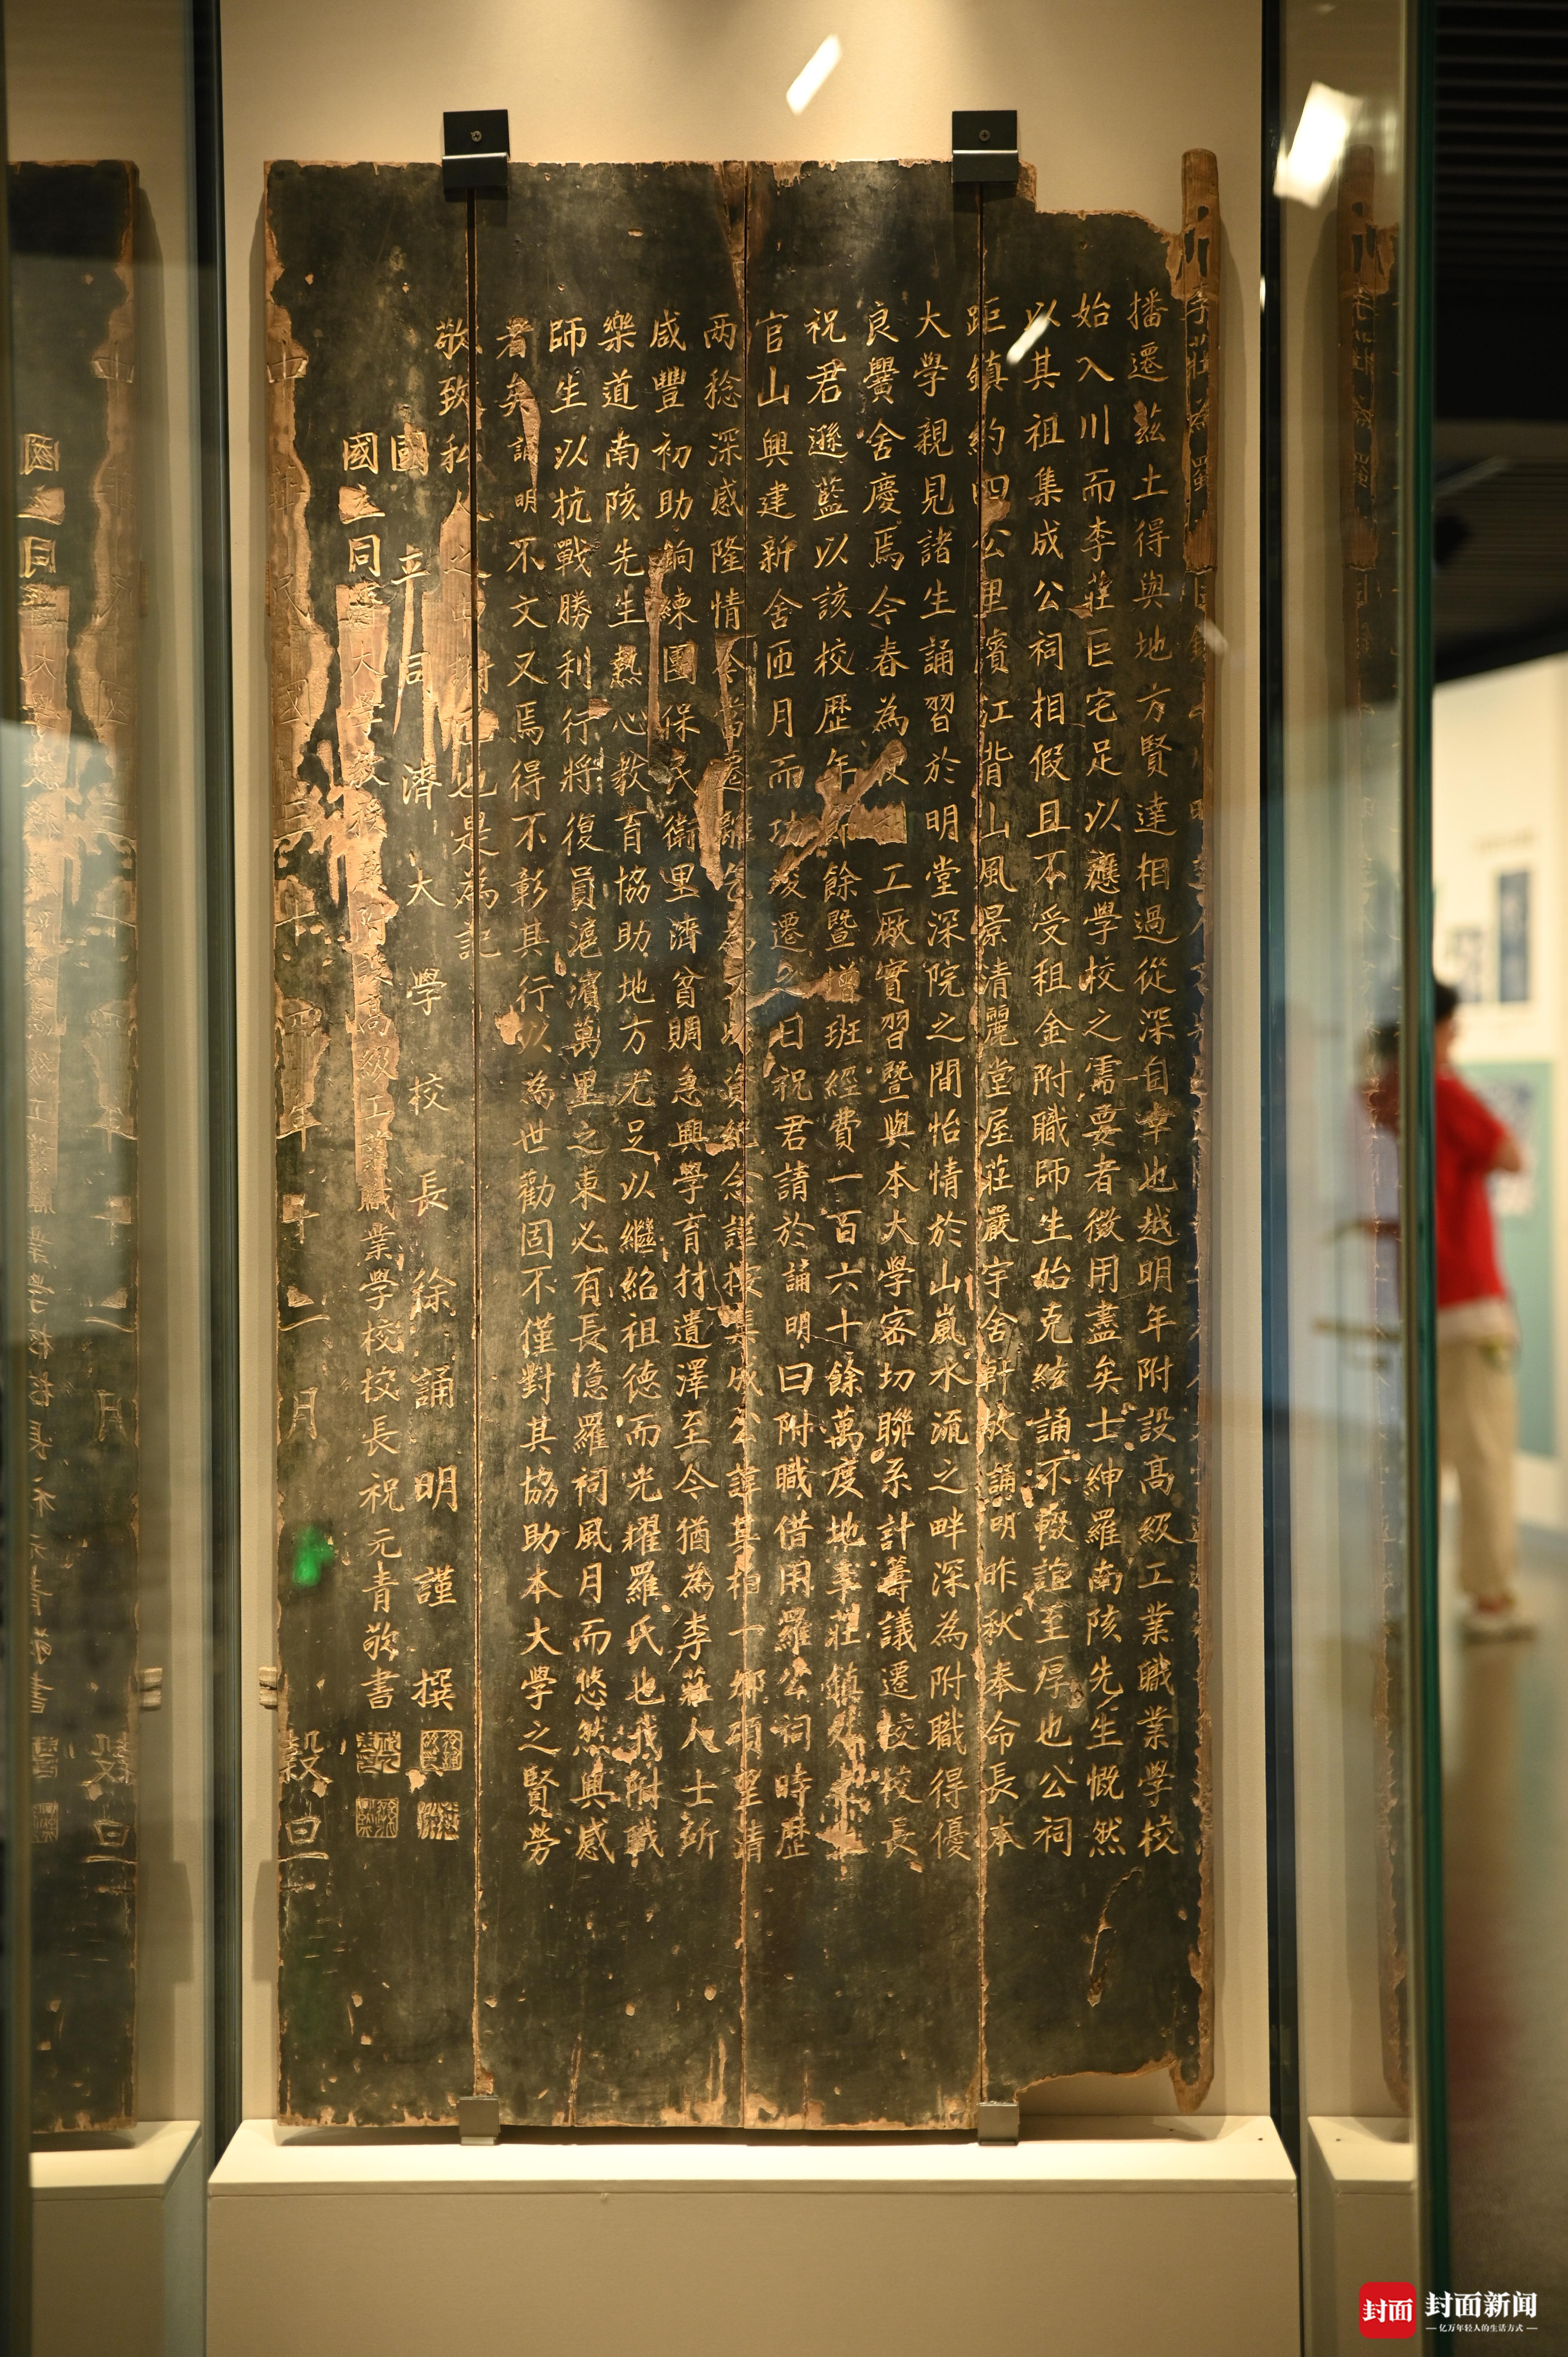 李莊為蜀
播遷茲土得與地方賢達相過從深自幸也越明年附設高級工業職業學校
始入川而李莊巨宅足以應學校之需要者徵用盡矣士紳羅南陔先生慨然
以其祖集成公祠相假且不受租金附職師生始克絃誦不輟誼至厚也公祠
距鎮約四公里濱江背山風景清麗堂屋莊嚴宇舍軒敞誦明昨秋奉命長本
大學親見諸生誦習於明堂深院之間怡情於山嵐水流之畔深為附職得優
良黌舍慶焉今春為 工厰實習暨與本大學密切聯系計籌議遷校校長
祝君遜藍以該校歷年節餘暨增班經費一百六十餘萬度地李莊鎮
官山興建新舍匝月而功竣遷之日祝君請於誦明曰附職借用羅公祠時歷
两稔深感隆情今當遷離 紀念謹按集成公諱其柏一鄉碩望清
咸豐初助餉練團保民衛里濟貧賙急興學育材遺澤至今猶為李莊人士所
樂道南陔先生熱心教育協助地方尤足以繼紹祖德而光耀羅氏也我附職
師生以抗戰勝利行將復員滬濱萬里之東必有長憶羅祠風月而悠然興感
者矣誦明不文又焉得不彰其行以為世勸固不僅對其協助本大學之賢勞
敬致私人之 也是為記
國立同濟大學校長徐誦明謹撰
國立同濟大學教授兼附設高級工業職業學校校長祝元青敬書
中華民國三十四年十二月穀旦
封面
封面新闻
亿万年轻人的生活方式